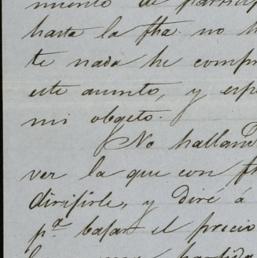 miento de particip
hasta la fha. no h
te nada he compr
este asunto, y esp
mi obgeto.
No halland
ver la que con fh
dirifirle, y diré á
pª bafar el precio